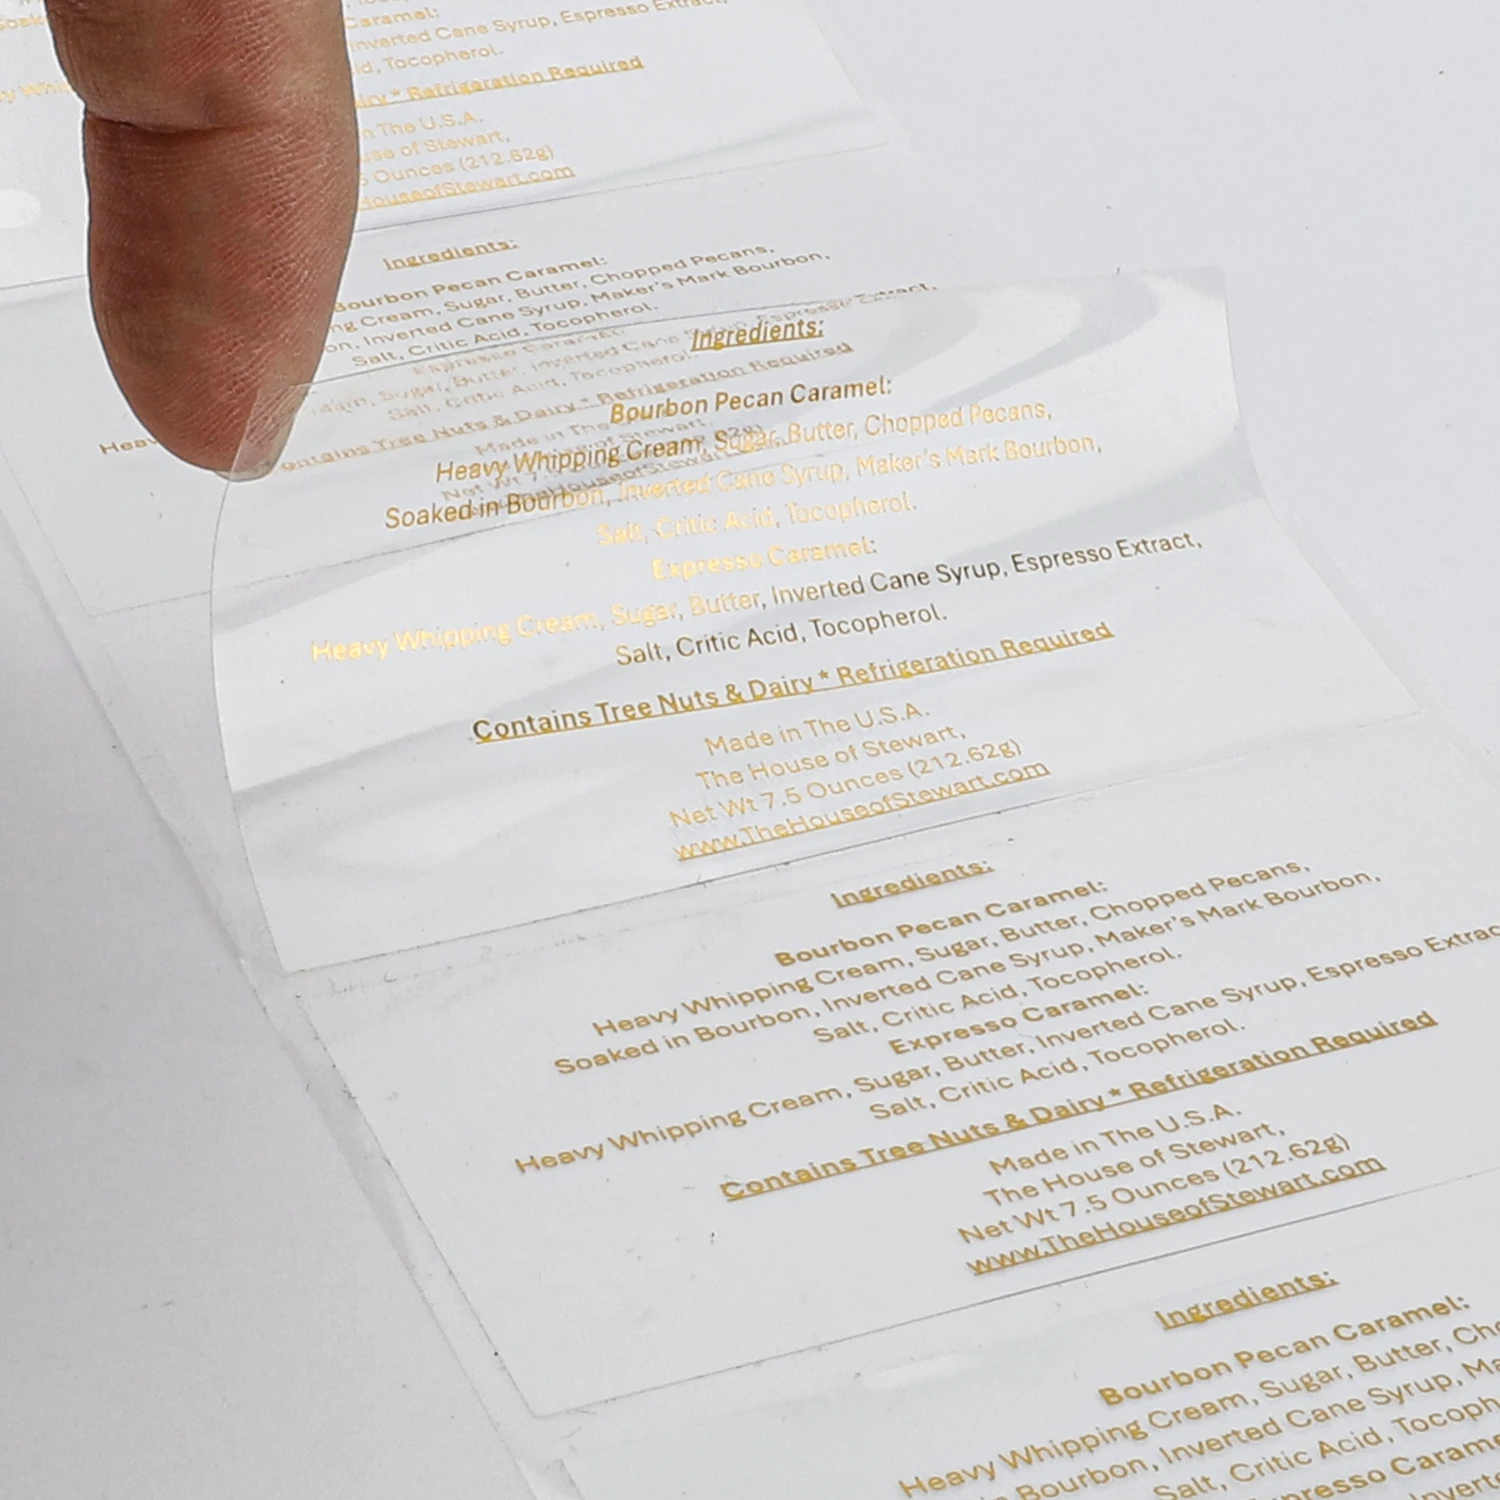 Caramel:
Inverted Cane Syrup, Espresso Extract,
Tocopherol.
* Refrigeration Required
The U.S.A.
of Stewart,
Ounces (212.62g)
HouseofStewart.com
Ingredients:
Bourbon Pecan Caramel:
Cream, Sugar, Butter, Chopped Pecans,
Inverted Cane Syrup, Maker's Mark Bourbon,
Salt, Critic Acid, Tocopherol.
Espresso Extract,
Expresso Caramel:
Sugar, Butter, Inverted Cane
Salt, Critic Acid, Tocopherol.
Tree Nuts & Dairy * Refrigeration Required
Made in The
of Stewart,
Net Wt 7.
Ingredients:
Bourbon Pecan Caramel:
Heavy Whipping Cream, Sugar, Butter, Chopped Pecans,
Soaked in Bourbon, Inverted Cane Syrup, Maker's Mark Bourbon,
Salt, Critic Acid, Tocopherol.
Expresso Caramel:
Heavy Whipping Cream, Sugar, Butter, Inverted Cane Syrup, Espresso Extract,
Salt, Critic Acid, Tocopherol.
Contains Tree Nuts & Dairy * Refrigeration Required
Made in The U.S.A.
The House of Stewart,
Net Wt 7.5 Ounces (212.62g)
www.TheHouseofStewart.com
Ingredients:
Bourbon Pecan Caramel:
Heavy Whipping Cream, Sugar, Butter, Chopped Pecans,
Soaked in Bourbon, Inverted Cane Syrup, Maker's Mark Bourbon,
Salt, Critic Acid, Tocopherol.
Expresso Caramel:
Heavy Whipping Cream, Sugar, Butter, Inverted Cane Syrup, Espresso Extrac
Salt, Critic Acid, Tocopherol.
Contains Tree Nuts & Dairy * Refrigeration Required
Made in The U.S.A.
The House of Stewart,
Net Wt 7.5 Ounces (212.62g)
www.TheHouseofStewart.com
Ingredients:
Bourbon Pecan Caramel:
Heavy Whipping Cream, Sugar, Butter, Cho
in Bourbon, Inverted Cane Syrup, Ma
Salt, Critic Acid, Tocoph
presso Carame
Inverte